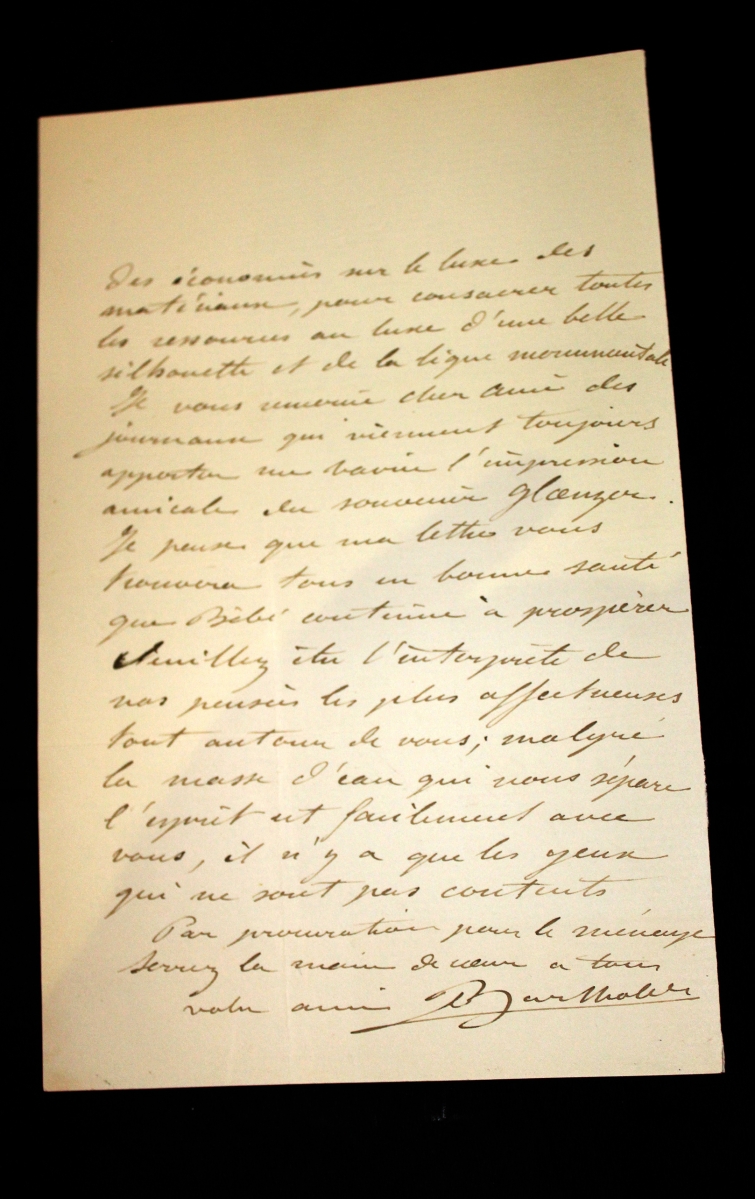 des économies sur le luxe des
matériaux, pour consacrer toutes
les ressources au luxe d'une belle
silhouette et de la ligne monumentale
Je vous remercie cher ami des
journaux qui viennent toujours
apporter me l'impression
amicale du souvenir Glœnzer.
Je pense que ma lettre vous
trouvera tous en bonne santé
que Bébé continue à prospérer
Veuillez être l'interprète de
nos pensées les plus affectueuses
tout autour de vous; malgré
la masse d'eau qui nous sépare
l'esprit est facilement avec
vous, il n'y a que les yeux
qui ne sont pas contents
Par procuration pour le ménage
serrez la main de cœur a tous
votre ami Bartholdi